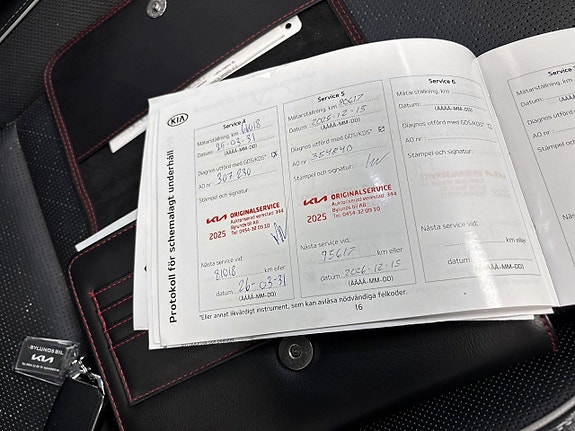 KIA
Protokoll för schemalagt underhåll
Service 4
Mätarställning, km 66018
Datum: 26-03-31
(ÅÅÅÅ-MM-DD)
Diagnos utförd med GDS/KDS*
AO nr 307 230
Stämpel och signatur:
KIA ORIGINALSERVICE
Auktoriserad verkstad 344
Bylunds bil AB
2025 Tel 0454-32 09 10
Nästa service vid:
81018 km eller
datum 26-03-31
(ÅÅÅÅ-MM-DD)
Service 5
Mätarställning, km 80617
Datum: 2025-12-15
(ÅÅÅÅ-MM-DD)
Diagnos utförd med GDS/KDS*
AO nr 354840
Stämpel och signatur:
KIA ORIGINALSERVICE
Auktoriserad verkstad 344
Bylunds bil AB
2025 Tel 0454-32 09 10
Nästa service vid:
95617 km eller
datum 2026-12-15
(ÅÅÅÅ-MM-DD)
Service 6
Mätarställning, km
Datum:
(ÅÅÅÅ-MM-DD)
Diagnos utförd med GDS/KDS*
AO nr
Stämpel och signatur:
Nästa service vid:
km eller
datum
(ÅÅÅÅ-MM-DD)
*Eller annat likvärdigt instrument, som kan avläsa nödvändiga felkoder.
16
BYLUNDS BIL
KIA